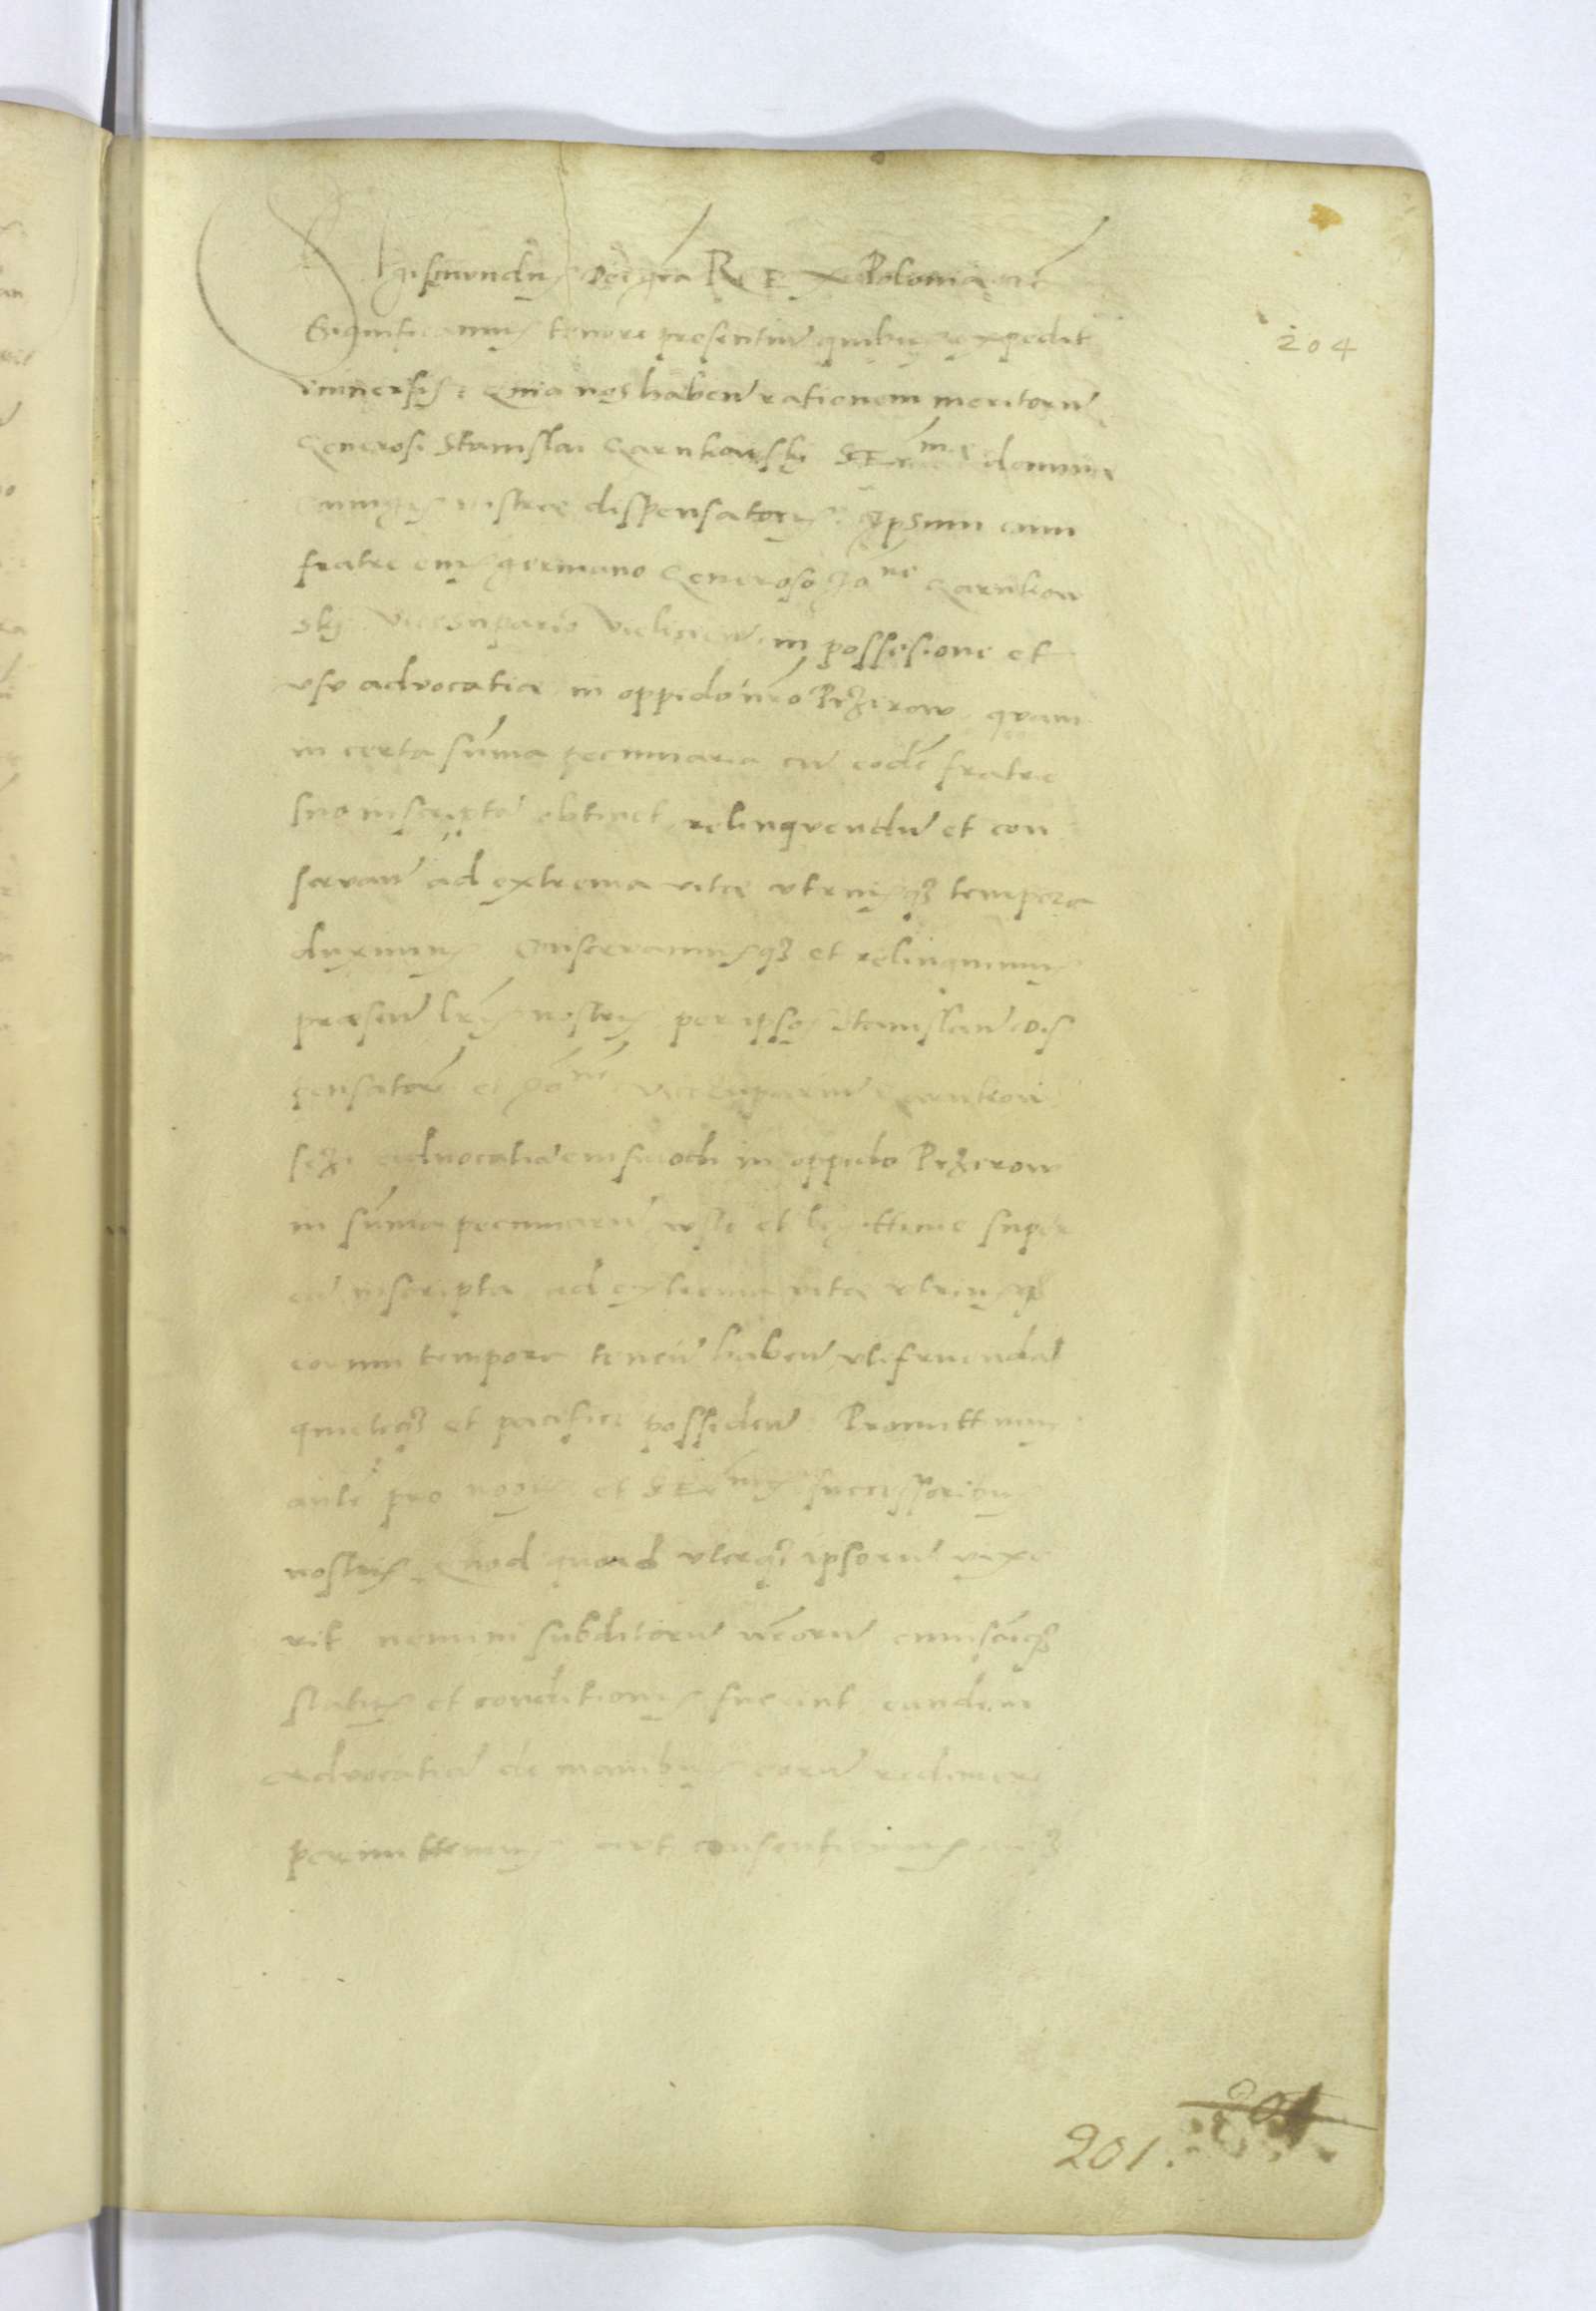 Sigismundus dei gra REX Poloniæ etc
Significamus tenore presentium quibus expedit
universis: Quia nos haben rationem meritoru
Generosi Stanislai Carnkowskj SERme domine
coniugis nostræ dispensatoris. Ipsum cum
fratre eius germano Generoso Joane Carnkow
skj. Vicesupario Vieliscien. in possesione et
usu advocatiæ in oppido nro Przirow. quam
in certa suma pecuniaria cu eode fratre
suo inscripta obtinet relinquendu et con
servan ad extrema vitæ utriusq; tempora
duximus conservamusq; et relinquimus
præsen lris nostris per ipsos Stanislau Dis
pensatore et Joane vicesupariu Carnkow
skj advocatia eiusmodi in oppido Przirow
in suma pecuniaru iuste et legittime super
ea inscripta ad extrema vitæ utriusq;
eorum tempora tenen haben utifruenda
quieteq; et pacifice possiden Promittimus
aute pro nobis et SERmis successoribus
nostris Quod quoad uterq; ipsoru vixe
rit nemini subditoru nroru cuiuscuq;
status et conditionis fuerint eandem
advocatia de manibus eoru redimere
permittemus aut consentiemus
204
201.